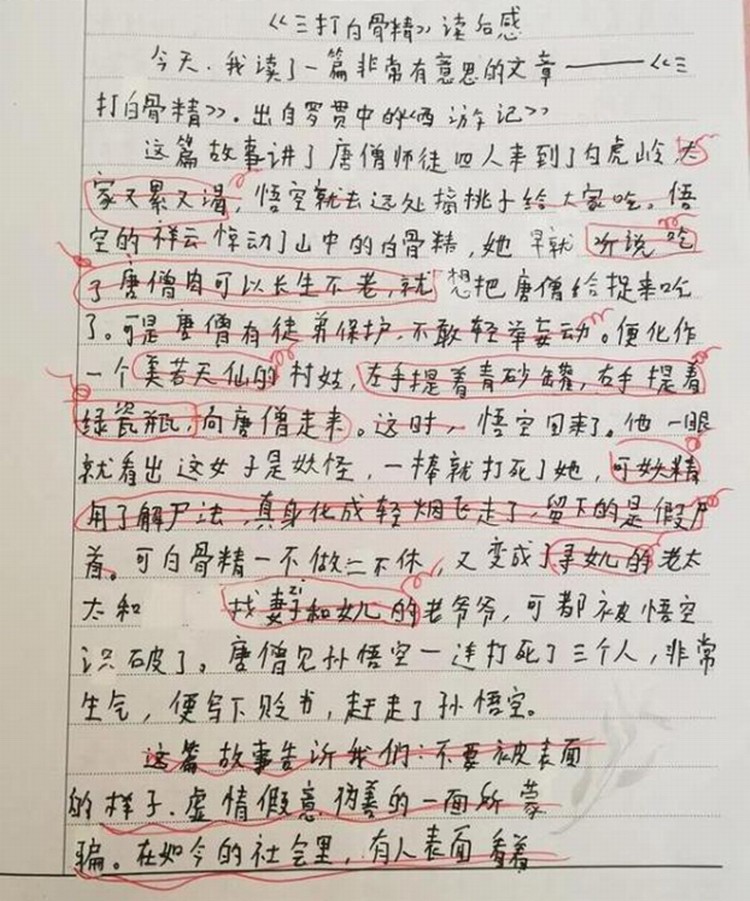 《三打白骨精》读后感
今天.我读了一篇非常有意思的文章——《三
打白骨精》.出自罗贯中的《西游记》
这篇故事讲了唐僧师徒四人来到了白虎岭,大
家又累又渴,悟空就去远处摘桃子给大家吃。悟
空的祥云惊动了山中的白骨精,她早就听说吃
了唐僧肉可以长生不老,就想把唐僧给捉来吃
了。可是唐僧有徒弟保护,不敢轻举妄动。便化作
一个美若天仙的村姑,左手提着青砂罐,右手提着
绿瓷瓶,向唐僧走来。这时,悟空回来了。他一眼
就看出这女子是妖怪,一棒就打死了她,可妖精
用了解尸法,真身化成轻烟飞走了,留下的是假尸
首。可白骨精一不做二不休,又变成了寻女儿的老太
太和 找妻子和女儿的老爷爷,可都被悟空
识破了。唐僧见孙悟空一连打死了三个人,非常
生气,便写下贬书,赶走了孙悟空。
这篇故事告诉我们:不要被表面
的样子.虚情假意伪善的一面所蒙
骗。在如今的社会里,有人表面看着